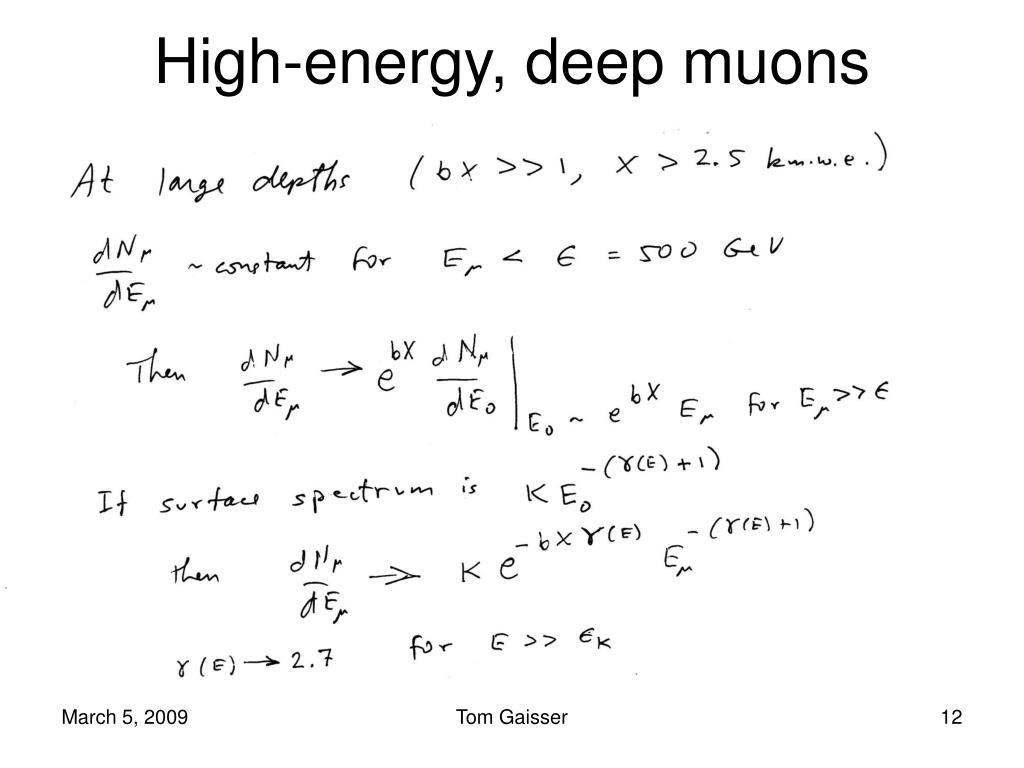 High-energy, deep muons
At large depths (bX >> 1, X > 2.5 km.w.e.)
dNμ/dEμ ~ constant for Eμ < ϵ = 500 GeV
Then dNμ/dEμ → e^{bX} dNμ/dE₀ |_{E₀ ~ e^{bX} Eμ for Eμ >> ϵ}
If surface spectrum is K E₀^{-(γ(E)+1)}
then dNμ/dEμ → K e^{-bXγ(E)} Eμ^{-(γ(E)+1)}
γ(E) → 2.7 for E >> ϵ_K
March 5, 2009 Tom Gaisser 12